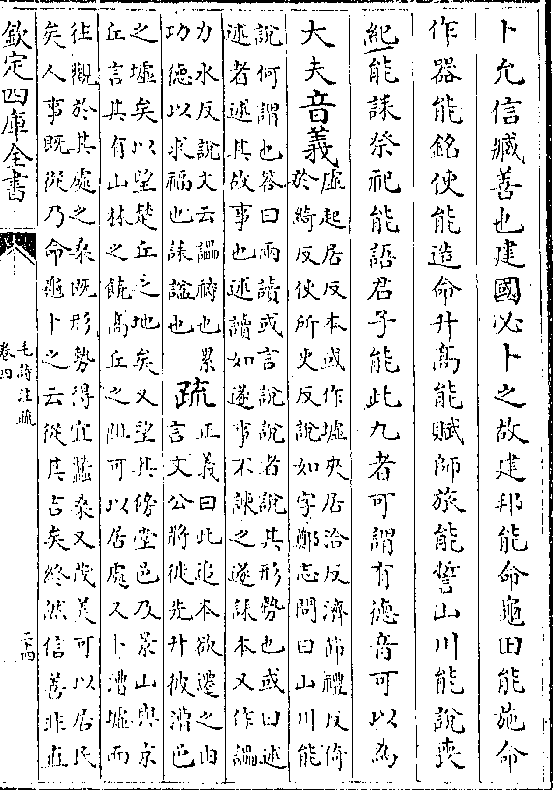 卜允信臧善也建國必卜之故建邦能命龜田能施命
作器能銘使能造命升高能賦師旅能誓山川能說喪
紀能誄祭祀能語君子能此九者可謂有德音可以為
大夫音義虛起居反本或作墟夾居洽反濟節禮反倚
於綺反使所吏反說如字鄭志問曰山川能
說何謂也答曰兩讀或言說說者說其形勢也或曰述
述者述其故事也述讀如遂事不諫之遂誄本又作讄
力水反說文云讄禱也累
功德以求福也誄諡也
疏正義曰此追本欲遷之由
言文公將徙先升彼漕邑
之墟矣以望楚丘之地矣又望其傍堂邑及景山與京
丘言其有山林之饒高丘之阻可以居處又下漕墟而
往觀於其處之桑既形勢得宜蠶桑又茂美可以居民
矣人事既從乃命龜卜之云從其吉矣終然信善非直
欽定四庫全書
毛詩注疏
卷四
二十四